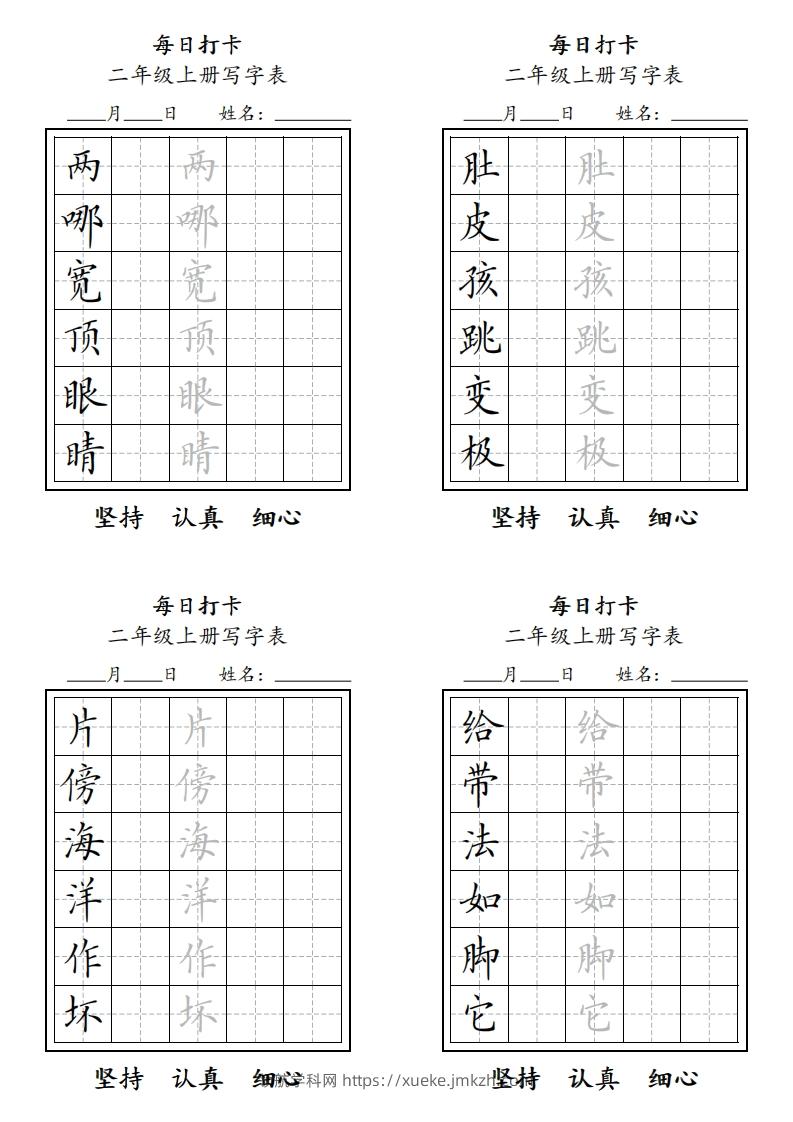 每日打卡
二年级上册写字表
____月____日 姓名：________
两 两
哪 哪
宽 宽
顶 顶
眼 眼
睛 睛
坚持 认真 细心
每日打卡
二年级上册写字表
____月____日 姓名：________
肚 肚
皮 皮
孩 孩
跳 跳
变 变
极 极
坚持 认真 细心
每日打卡
二年级上册写字表
____月____日 姓名：________
片 片
傍 傍
海 海
洋 洋
作 作
坏 坏
坚持 认真 细心
每日打卡
二年级上册写字表
____月____日 姓名：________
给 给
带 带
法 法
如 如
脚 脚
它 它
坚持 认真 细心
航学科网 https://xueke.jmkzh